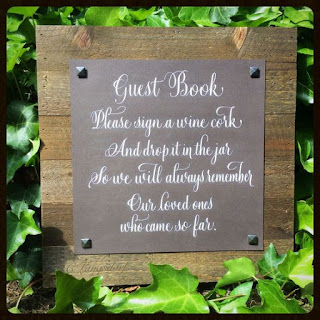 Guest Book
Please sign a wine cork
And drop it in the jar
So we will always remember
Our loved ones
who came so far.